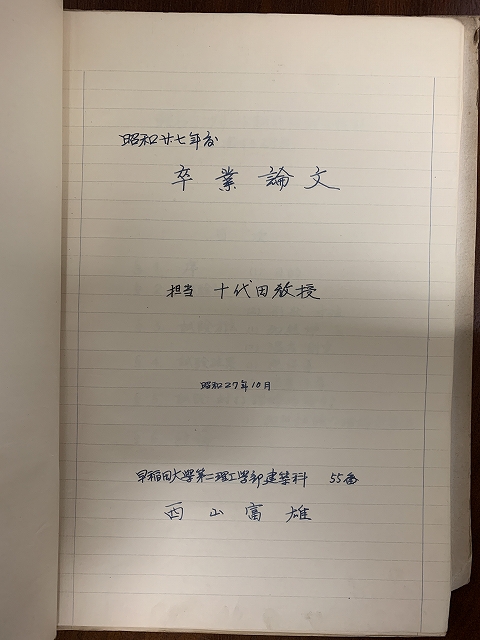 昭和廿七年度
卒業論文
担当 十代田教授
昭和27年10月
早稲田大学第二理工学部建築科 55番
西山富雄